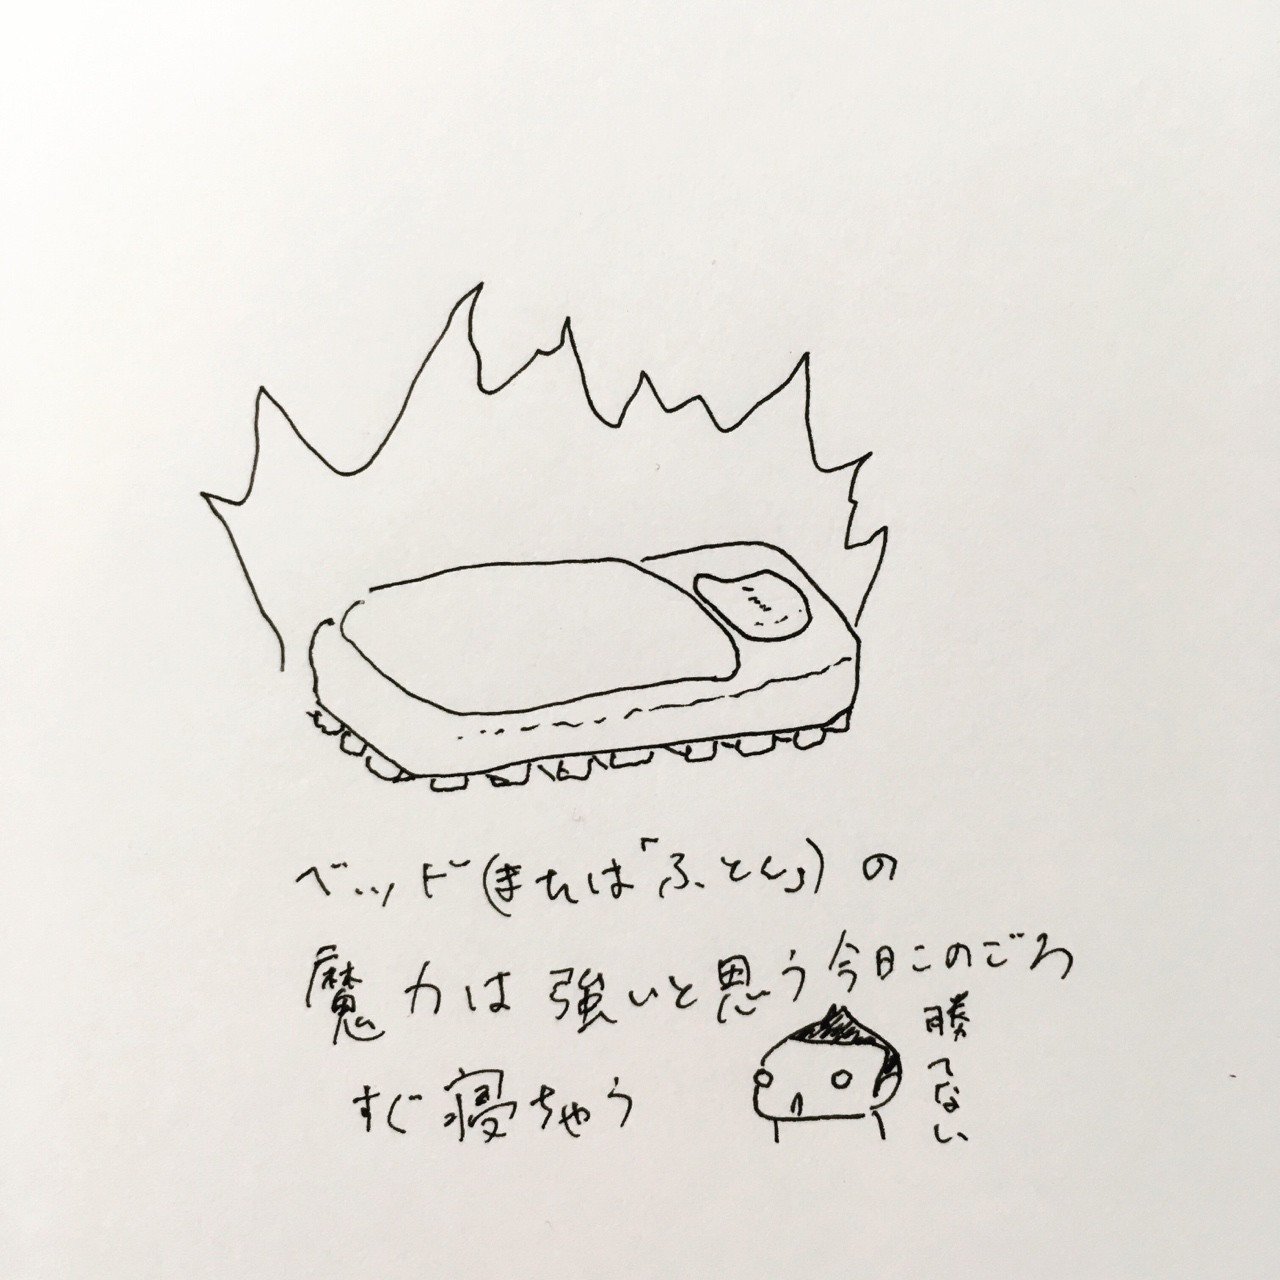 ベッド(または「ふとん」)の
魔力は強いと思う今日このごろ
すぐ寝ちゃう
勝てない